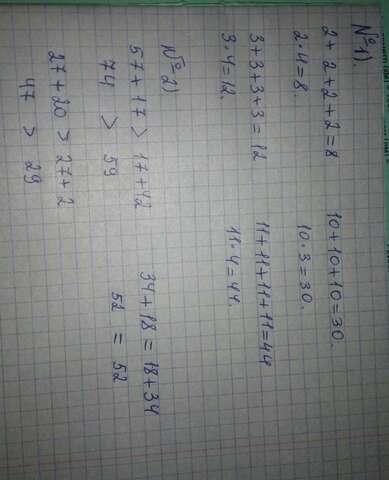 №1).
2+2+2+2=8 10+10+10=30.
2·4=8. 10·3=30.
3+3+3+3=12 11+11+11+11=44
3·4=12. 11·4=44.
№2)
57+17 > 17+42 34+18 = 18+34
74 > 59 52 = 52
27+20 > 27+2
47 > 29